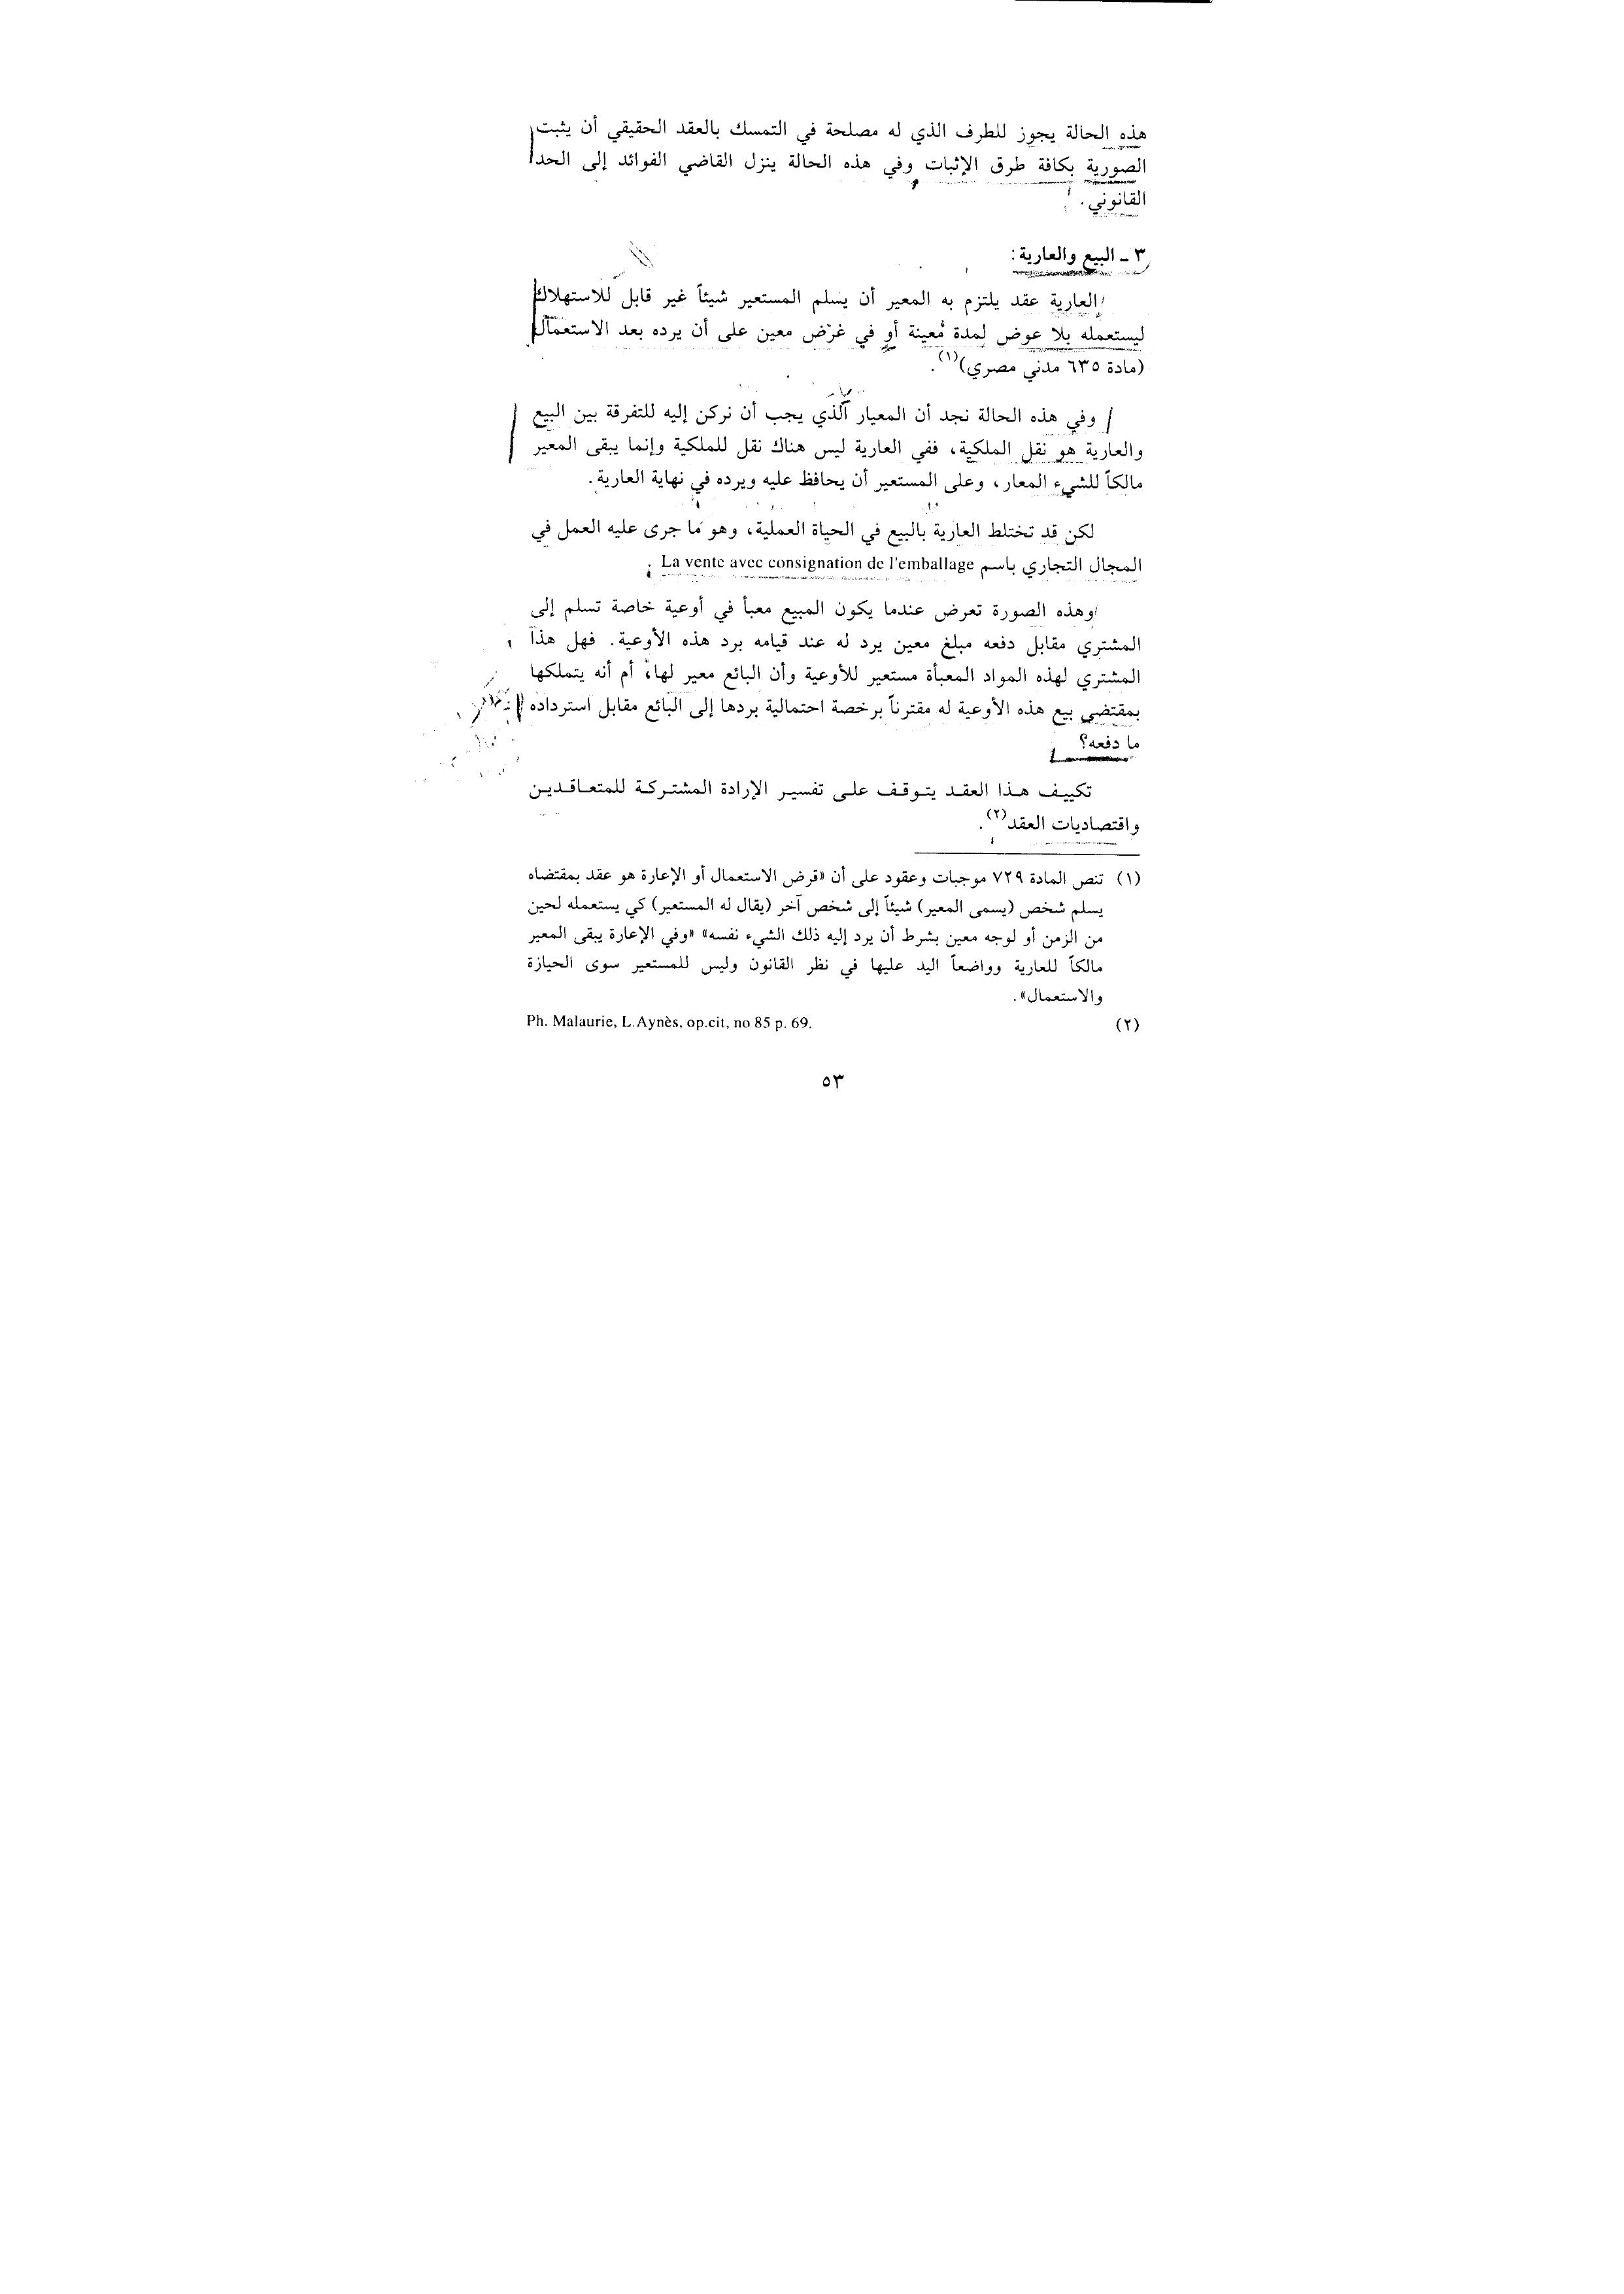 هذه الحالة يجوز للطرف الذي له مصلحة في التمسك بالعقد الحقيقي أن يثبت
الصورية بكافة طرق الإثبات وفي هذه الحالة ينزل القاضي الفوائد إلى الحد
القانوني.
٣ ـ البيع والعارية:
العارية عقد يلتزم به المعير أن يسلم المستعير شيئاً غير قابل للاستهلاك
ليستعمله بلا عوض لمدة معينة أو في غرض معين على أن يرده بعد الاستعمال
(مادة ٦٣٥ مدني مصري)(١).
وفي هذه الحالة نجد أن المعيار الذي يجب أن نركن إليه للتفرقة بين البيع
والعارية هو نقل الملكية، ففي العارية ليس هناك نقل للملكية وإنما يبقى المعير
مالكاً للشيء المعار، وعلى المستعير أن يحافظ عليه ويرده في نهاية العارية.
لكن قد تختلط العارية بالبيع في الحياة العملية، وهو ما جرى عليه العمل في
المجال التجاري باسم La vente avec consignation de l'emballage .
وهذه الصورة تعرض عندما يكون المبيع معبأ في أوعية خاصة تسلم إلى
المشتري مقابل دفعه مبلغ معين يرد له عند قيامه برد هذه الأوعية. فهل هذا
المشتري لهذه المواد المعبأة مستعير للأوعية وأن البائع معير لها، أم أنه يتملكها
بمقتضى بيع هذه الأوعية له مقترناً برخصة احتمالية بردها إلى البائع مقابل استرداده
ما دفعه؟
تكييف هذا العقد يتوقف على تفسير الإرادة المشتركة للمتعاقدين
واقتصاديات العقد(٢).
(١) تنص المادة ٧٢٩ موجبات وعقود على أن «قرض الاستعمال أو الإعارة هو عقد بمقتضاه
يسلم شخص (يسمى المعير) شيئاً إلى شخص آخر (يقال له المستعير) كي يستعمله لحين
من الزمن أو لوجه معين بشرط أن يرد إليه ذلك الشيء نفسه» «وفي الإعارة يبقى المعير
مالكاً للعارية وواضعاً اليد عليها في نظر القانون وليس للمستعير سوى الحيازة
والاستعمال».
(٢) Ph. Malaurie, L.Aynès, op.cit, no 85 p. 69.
٥٣